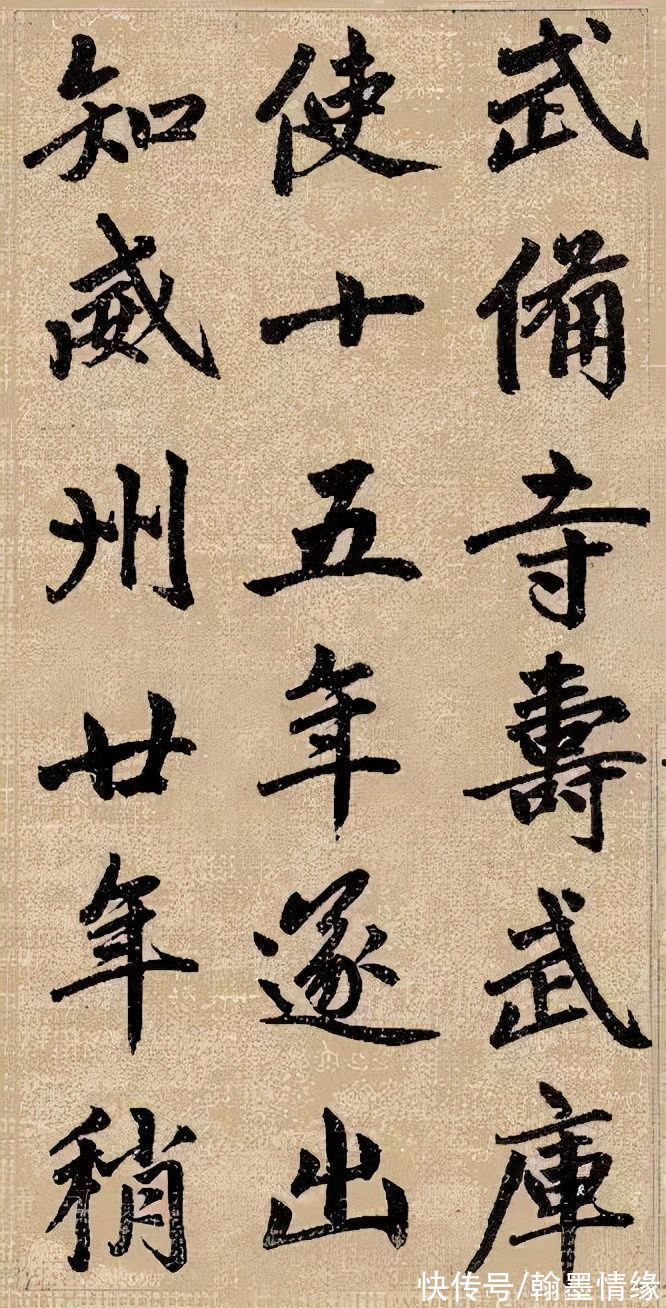 武備寺壽武庫
使十五年遂出
知威州廿年稍
快传号/翰墨情缘